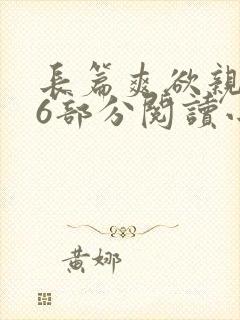 長篇爽欲親
6部分閱讀
黃娜